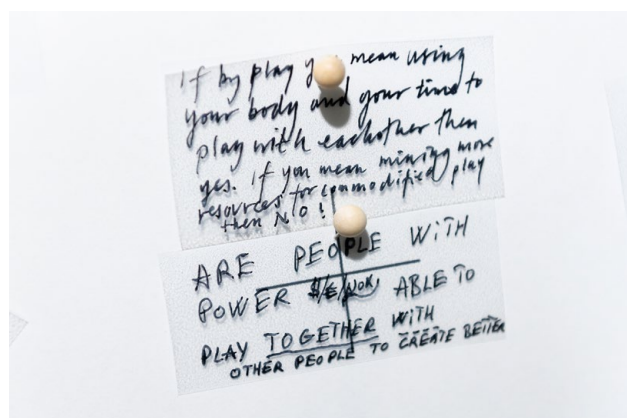 If by play you mean using
your body and your time to
play with eachother then
yes. If you mean mining more
resources for commodified play
then NO!
ARE PEOPLE WITH
POWER $/€/NOK ABLE TO
PLAY TOGETHER WITH
OTHER PEOPLE TO CREATE BETTER